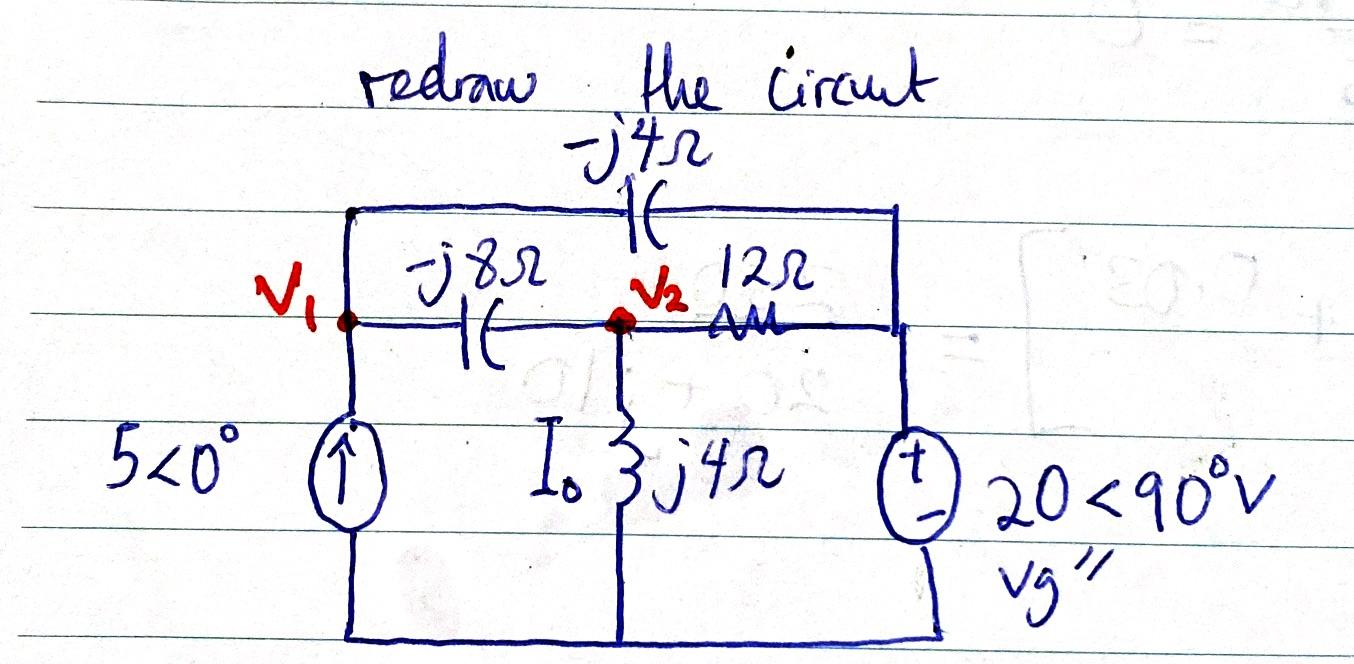 redraw the circuit
-j4Ω
-j8Ω
V2
12Ω
V1
5<0°
I₀
j4Ω
+
-
20<90°V
Vg"